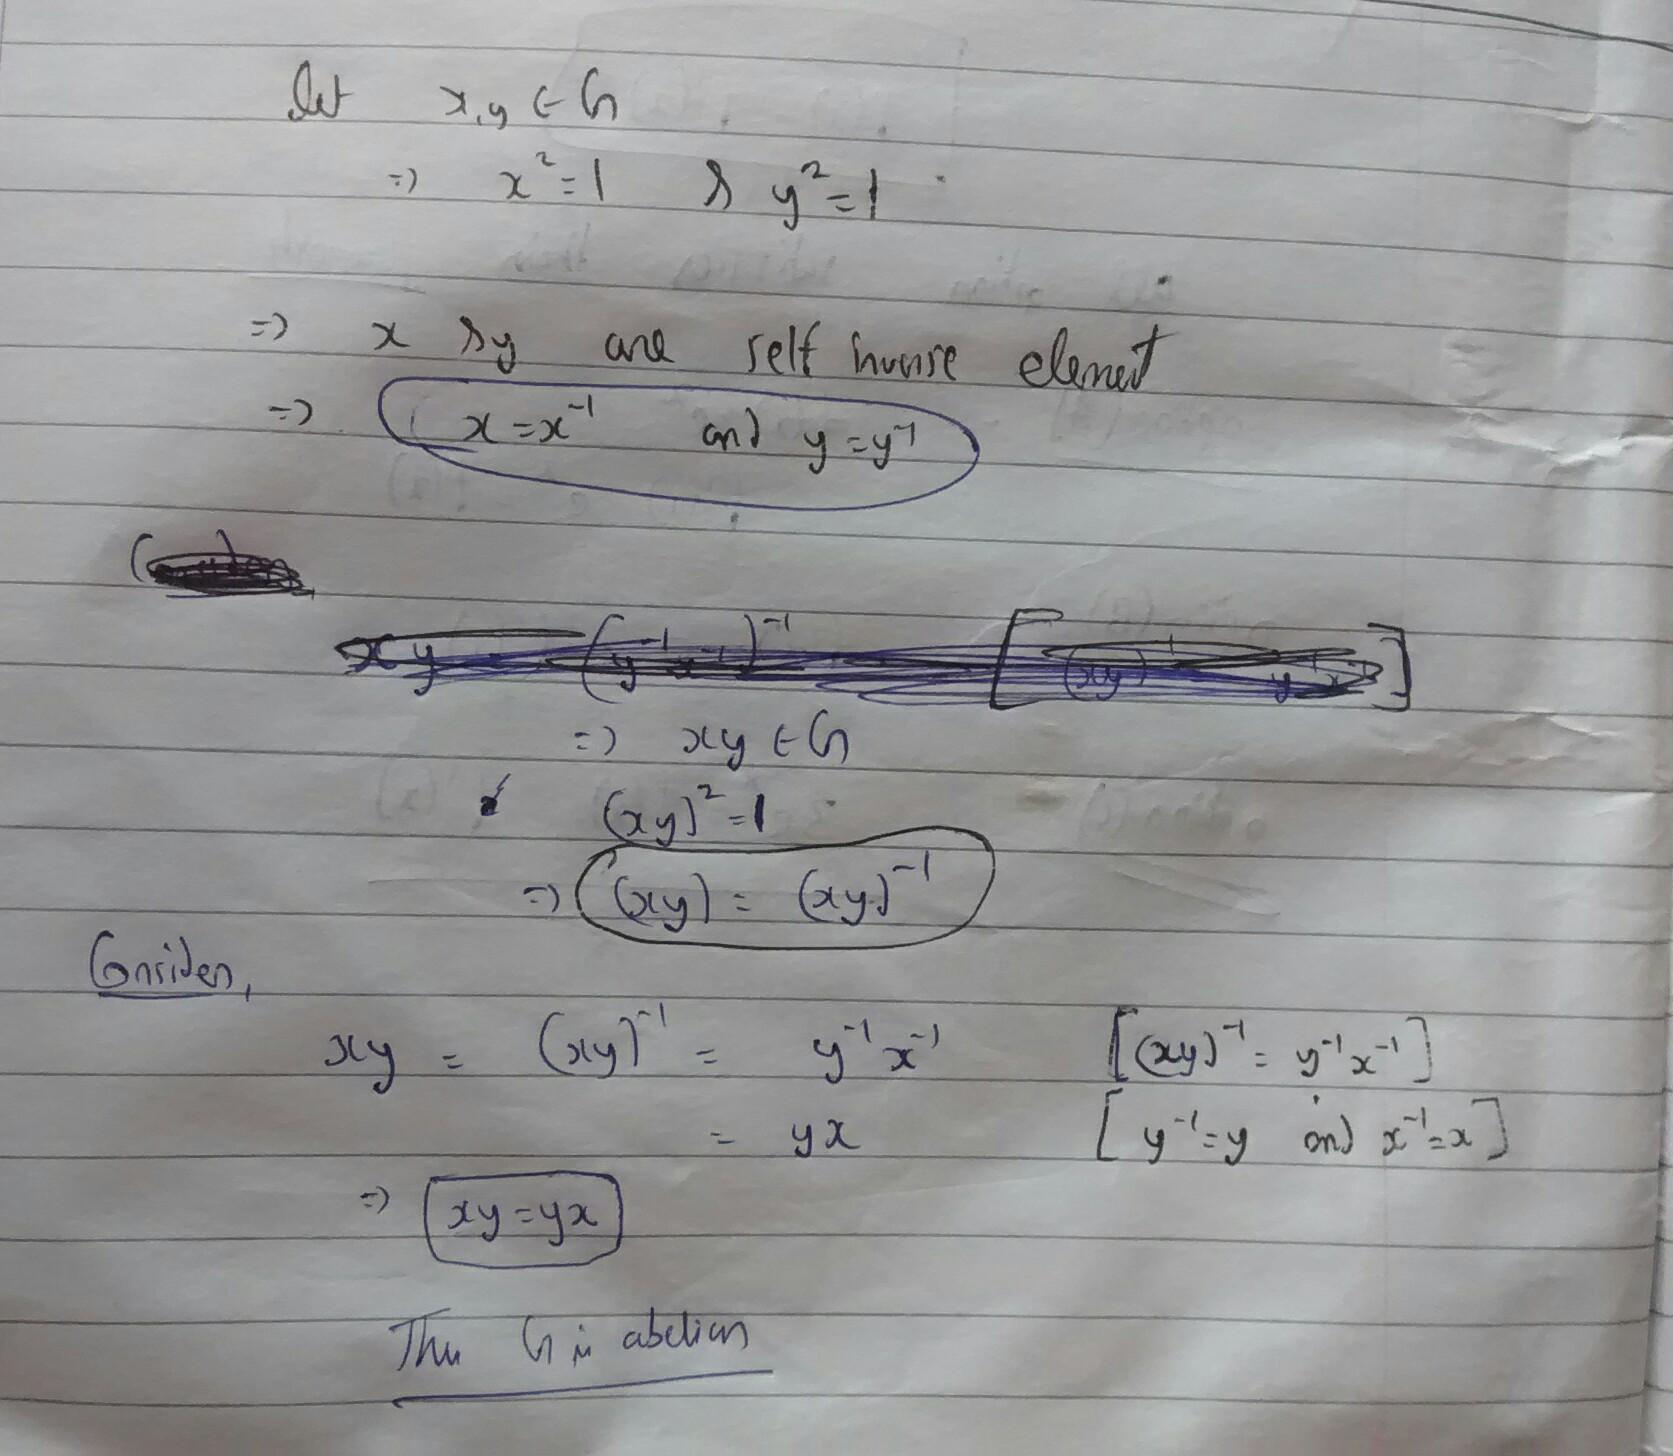 let x, y ∈ G
=> x² = 1 & y² = 1
=> x & y are self inverse element
=> x = x⁻¹ and y = y⁻¹
xy (y⁻¹x⁻¹)⁻¹ [(xy) y x]
=> xy ∈ G
(xy)² = 1
=> (xy) = (xy)⁻¹
Consider,
xy = (xy)⁻¹ = y⁻¹x⁻¹ [(xy)⁻¹ = y⁻¹x⁻¹]
= yx [y⁻¹ = y and x⁻¹ = x]
=> xy = yx
Thu G is abelian